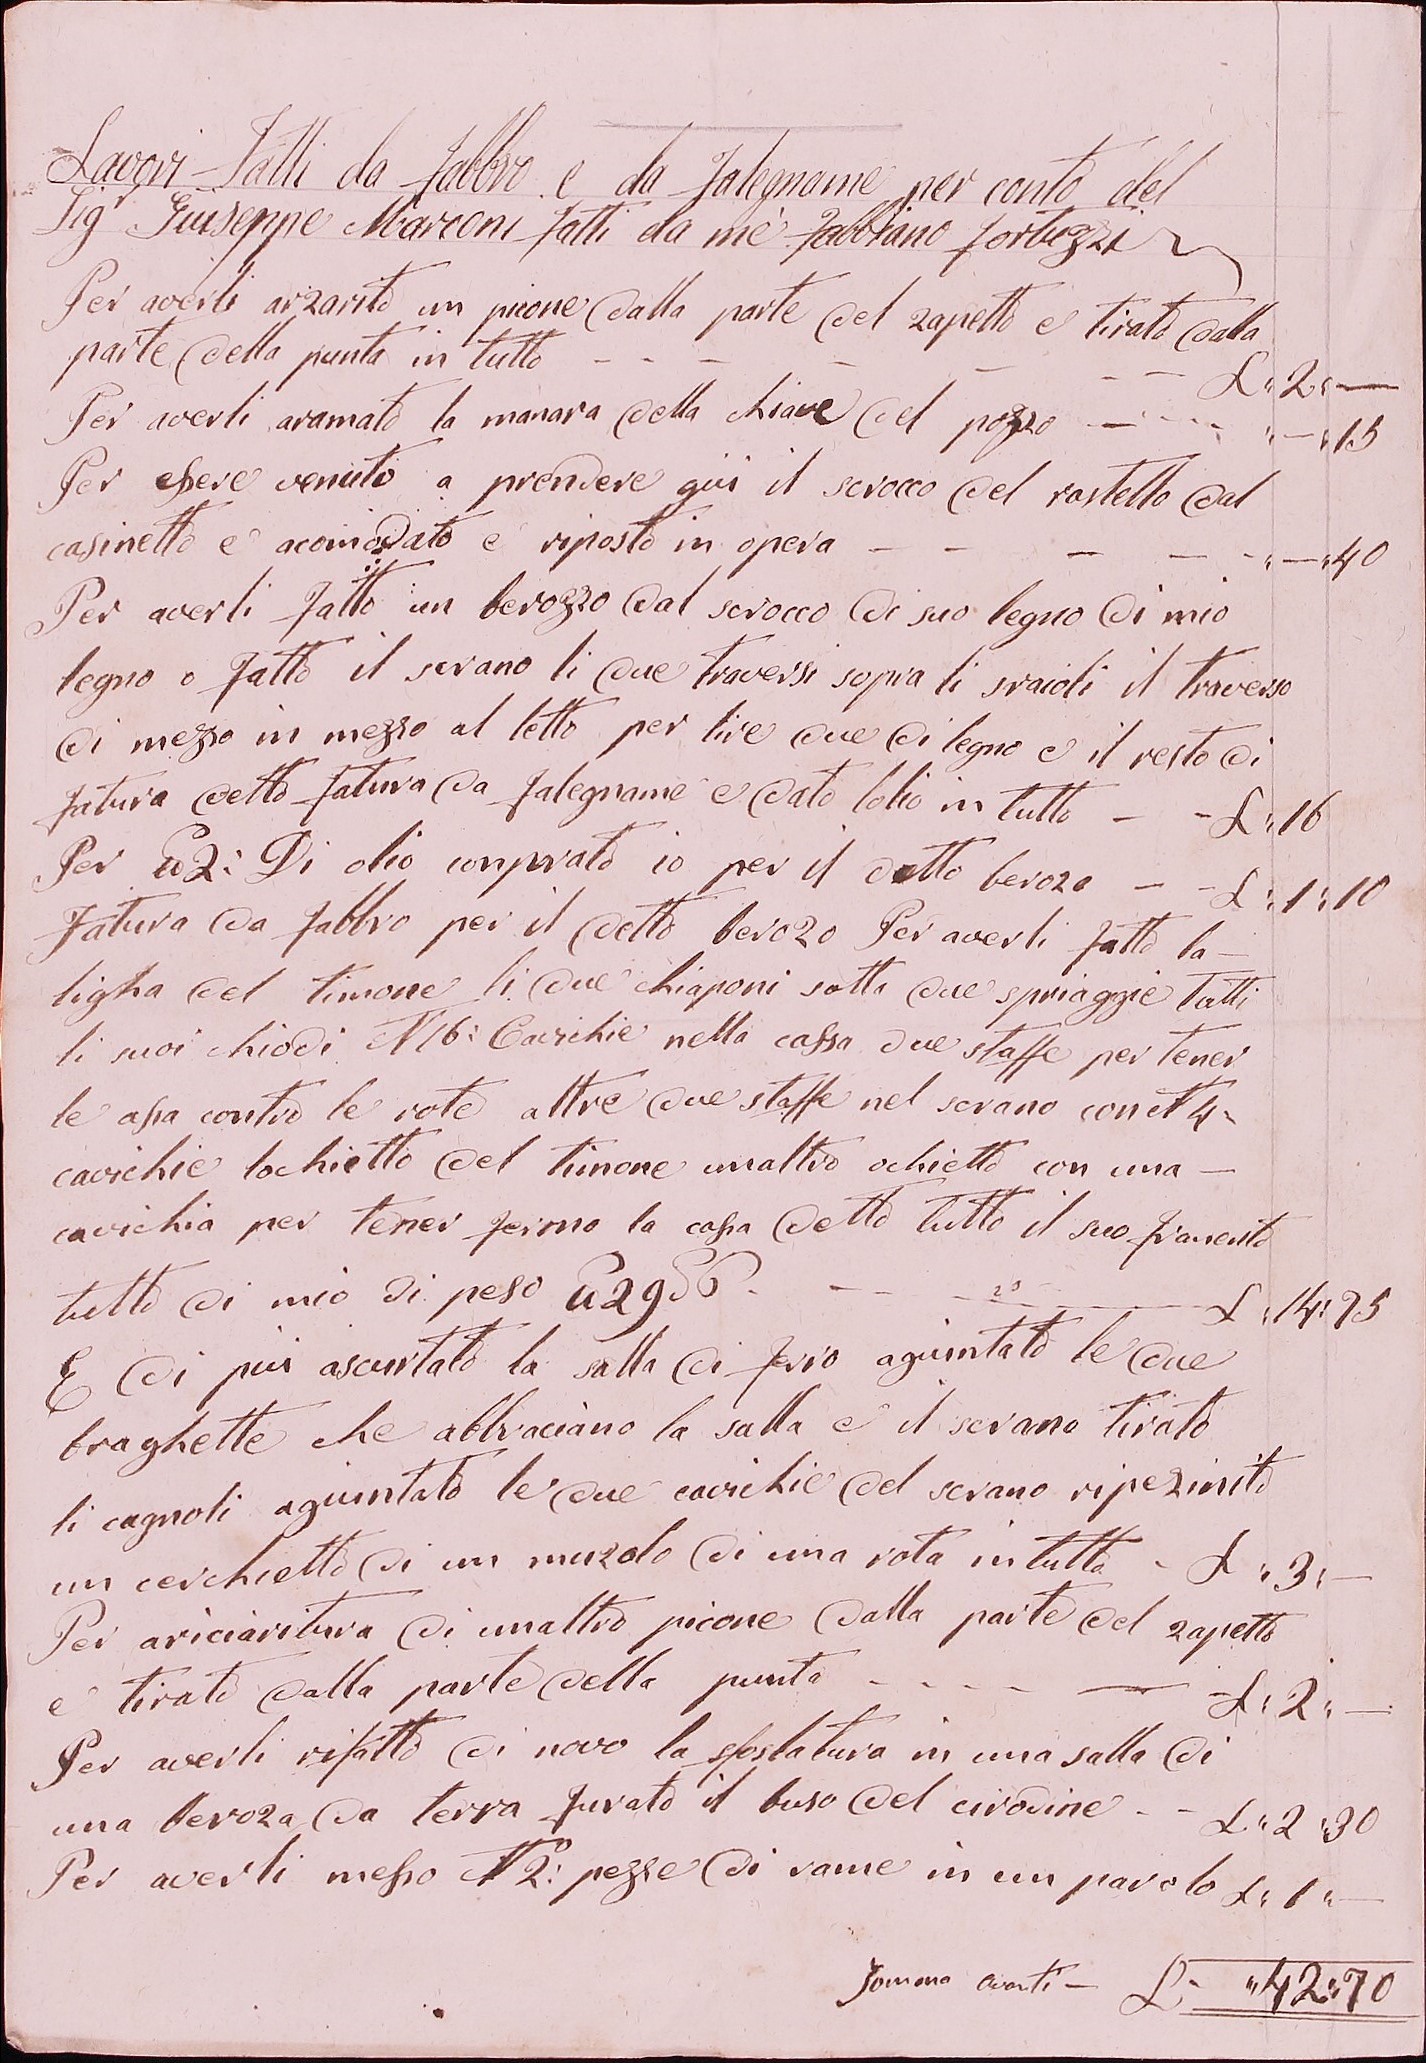 Lavori Fatti da fabbro e da falegname per conto del
Sig.r Giuseppe Marconi fatti da mè Fabbiano Fortuzzi
Per averli arzarito un picone dalla parte del zapetto e tirato dalla
parte della punta in tutto - - - - - - - £ : 2 : —
Per averli aramato la manara della chiave del pozzo — - - - „ — : 15
Per essere venuto a prendere giù il scrocco del rastello dal
casinetto e acomodato e riposto in opera — - - - - „ — „ 40
Per averli fatto un berozzo dal scrocco di suo legno di mio
legno o fatto il scrano li due traversi sopra li sraioli il traverso
di mezzo in mezzo al letto per lire due di legno e il resto di
fatura detto fatura da falegname e dato lolio in tutto — - £ : 16
Per 2 : Di olio conprato io per il detto berozo — - £ : 1 : 10
Fatura da fabbro per il detto berozo Per averli fatto la —
ligha del timone li due chiaponi sotto due spriaggie tutti
li suoi chiodi N 16 : Cavichie nella cassa due staffe per tener
le assa contro le rote altre due staffe nel scrano con N 4 -
cavichie lochietto del timone unaltro ochietto con una —
cavichia per tener fermo la cassa detto tutto il suo framento
tutto di mio di peso 29 - - - £ : 14 : 95
E di più ascurtato la salla di ferro agiuntato le due
braghette che abbraciano la salla e il scrano tirato
li cagnoli agiuntato le due cavichie del scrano ripezinito
un cerchietto di un muzolo di una rota in tutto - £ : 3 : —
Per ariciaritura di unaltro picone dalla parte del zapetto
e tirato dalla parte della punta - - - - — - £ : 2 : —
Per averli rifatto di novo la sfoslatura in una salla di
una beroza da terra furato il buso del cirodine - - £ : 2 : 30
Per averli messo N 2 : pezze di rame in un parolo £ : 1 : —
Somma avanti — £ - „ 42 : 70